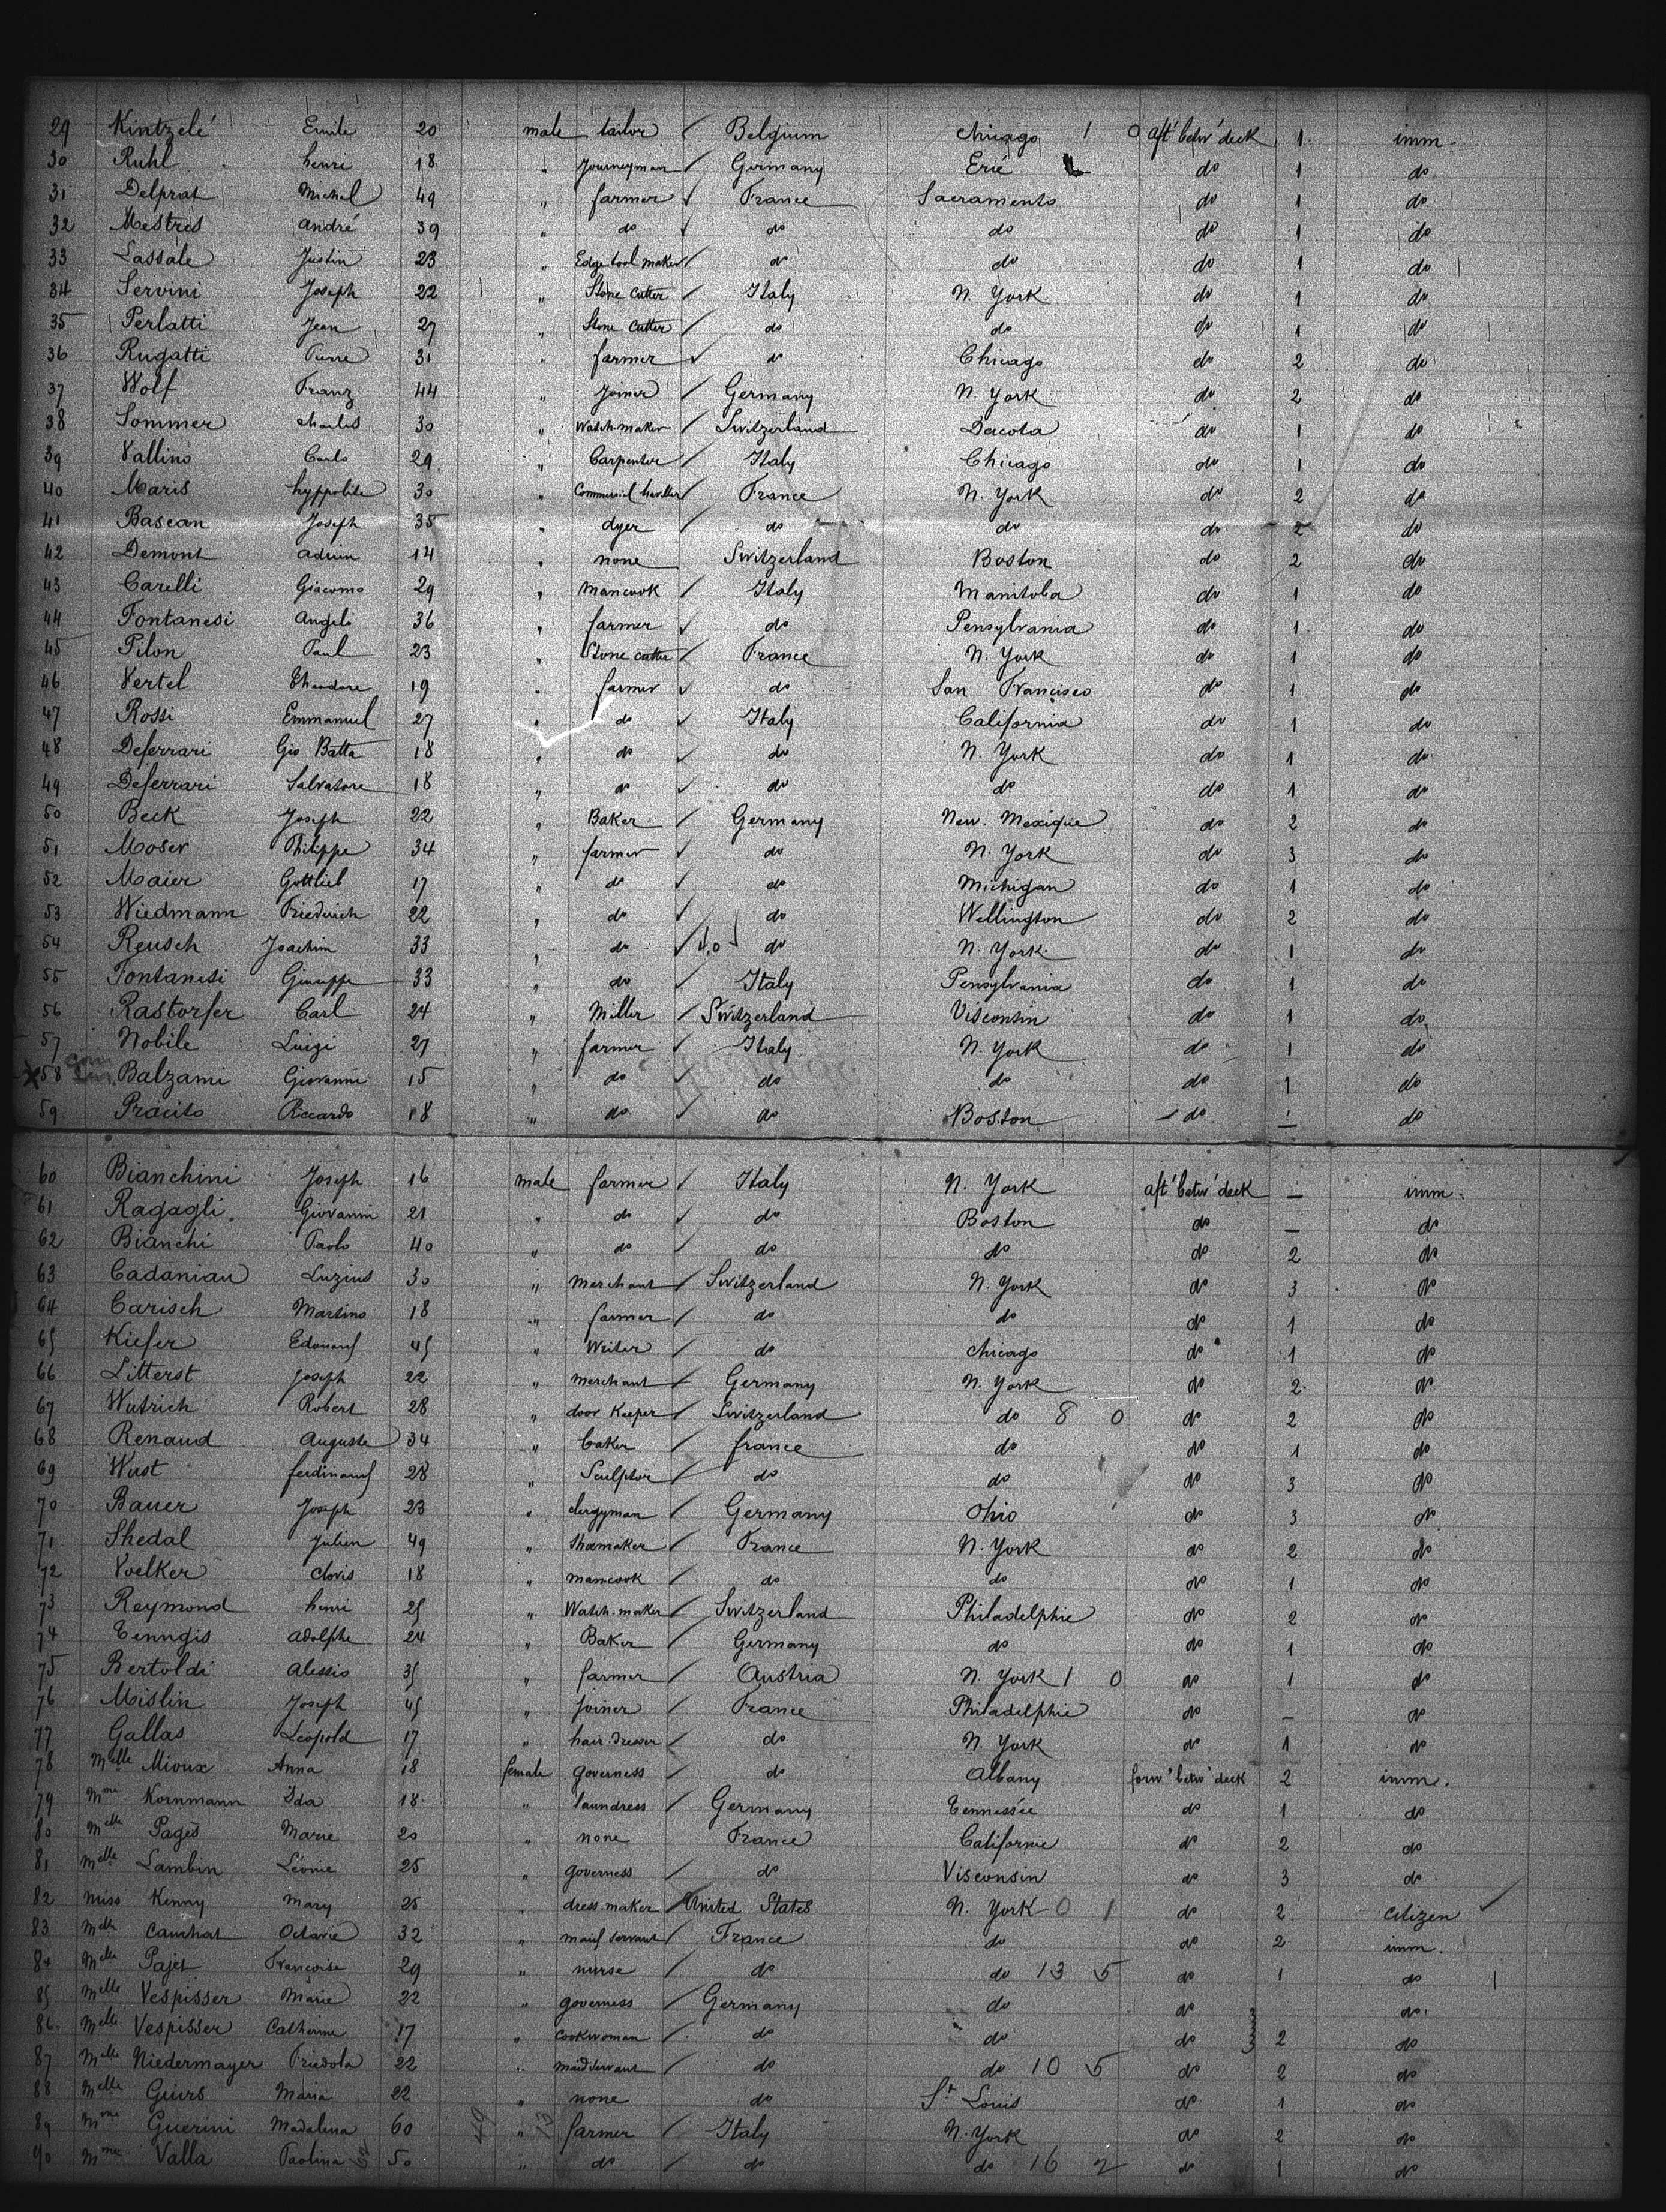 29 Kintzelé Emile 20 male tailor / Belgium Chicago 1 0 aft' betw' deck 1. imm.
30 Ruhl henri 18 " Journeyman / Germany Erié do 1 do
31 Delprat Michel 49 " farmer ✓ France Sacramento do 1 do
32 Mestres andré 39 " do ✓ do do do 1 do
33 Lassale Justin 23 " Edge tool maker / do do do 1 do
34 Servini Joseph 22 " Stone Cutter / Italy N. York do 1 do
35 Perlatti Jean 27 " Stone Cutter / do do do 1 do
36 Rugatti Pierre 31 " farmer ✓ do Chicago do 2 do
37 Wolf Franz 44 " Joiner / Germany N. York do 2 do
38 Sommer charles 30 " Watch maker / Switzerland Dacota do 1 do
39 Vallino Carlo 29 " Carpenter / Italy Chicago do 1 do
40 Maris hyppolite 30 " Commercial traveller / France N. York do 2 do
41 Bascan Joseph 35 " dyer / do do do 2 do
42 Demont adrien 14 " none Switzerland Boston do 2 do
43 Carelli Giacomo 29 " Mancook / Italy Manitoba do 1 do
44 Fontanesi Angelo 36 " farmer ✓ do Pensylvania do 1 do
45 Filon Paul 23 " Stone cutter / France N. York do 1 do
46 Vertel Theodore 19 " farmer ✓ do San Francisco do 1 do
47 Rossi Emmanuel 27 " do ✓ Italy California do 1 do
48 Deferrari Gio Batta 18 " do ✓ do N. York do 1 do
49 Deferrari Salvatore 18 " do ✓ do do do 1 do
50 Beck Joseph 22 " Baker / Germany New. Mexique do 2 do
51 Moser Philippe 34 " farmer ✓ do N. York do 3 do
52 Maier Gottlieb 17 " do ✓ do Michigan do 1 do
53 Wiedmann Friedrich 22 " do ✓ do Wellington do 2 do
54 Reusch Joachim 33 " do ✓ do N. York do 1 do
55 Fontanesi Giuseppe 33 " do ✓ Italy Pensylvania do 1 do
56 Rastorfer Carl 24 " Miller / Switzerland Visconsin do 1 do
57 Nobile Luigi 27 " farmer ✓ Italy N. York do 1 do
X 58 Balzami Giovanni 15 " do ✓ do do do 1 do
59 Pracito Riccardo 18 " do ✓ do Boston do 1 do
60 Bianchini Joseph 16 male farmer ✓ Italy N. York aft' betw' deck — imm.
61 Ragagli Giovanni 21 " do ✓ do Boston do — do
62 Bianchi Paolo 40 " do ✓ do do do 2 do
63 Cadanian Luzius 30 " Merchant / Switzerland N. York do 3 do
64 Carisch Martino 18 " farmer / do do do 1 do
65 Kiefer Edouard 45 " Writer / do chicago do 1 do
66 Litterst Joseph 22 " merchant / Germany N. York do 2 do
67 Wutrich Robert 28 " door Keeper / Switzerland do 8 0 do 2 do
68 Renaud Auguste 34 " baker / france do do 1 do
69 Wust ferdinand 28 " Sculptor / do do do 3 do
70 Bauer Joseph 23 " clergyman / Germany Ohio do 3 do
71 Shedal Julien 49 " Shoemaker / France N. York do 2 do
72 Voelker clovis 18 " mancook / do do do 1 do
73 Reymond henri 25 " Watch-maker / Switzerland Philadelphie do 2 do
74 Tenngis adolphe 24 " Baker / Germany do do 1 do
75 Bertoldi Alessio 35 " farmer / Austria N. York 1 0 do 1 do
76 Mislin Joseph 45 " Joiner / France Philadelphie do — do
77 Gallas Leopold 17 " hair-dresser / do N. York do 1 do
78 Melle Mioux Anna 18 female governess / do Albany forw' betw' deck 2 imm.
79 Mme Kornmann Ida 18 " laundress / Germany Tennessée do 1 do
80 Melle Pagès Marie 20 " none France Californie do 2 do
81 Melle Lambin Léonie 25 " governess / do Visconsin do 3 do
82 Miss Kenny Mary 25 " dress maker / United States N. York 0 1 do 2 citizen ✓
83 Melle Cauchat Octavie 32 " maid servant / France do do 2 imm.
84 Melle Pajet Francoise 29 " nurse / do do 13 5 do 1 do
85 Melle Vespisser Marie 22 " governess / Germany do do do
86 Melle Vespisser Catherine 17 " cookwoman / do do do 2 do
87 Melle Niedermayer Friedola 22 " maidservant / do do 10 5 do 2 do
88 Melle Geiirs Maria 22 " none do St Louis do 1 do
89 Mme Guerini Madalena 60 " farmer / Italy N. York do 2 do
90 Mme Valla Paolina 50 " do / do do 16 2 do 1 do